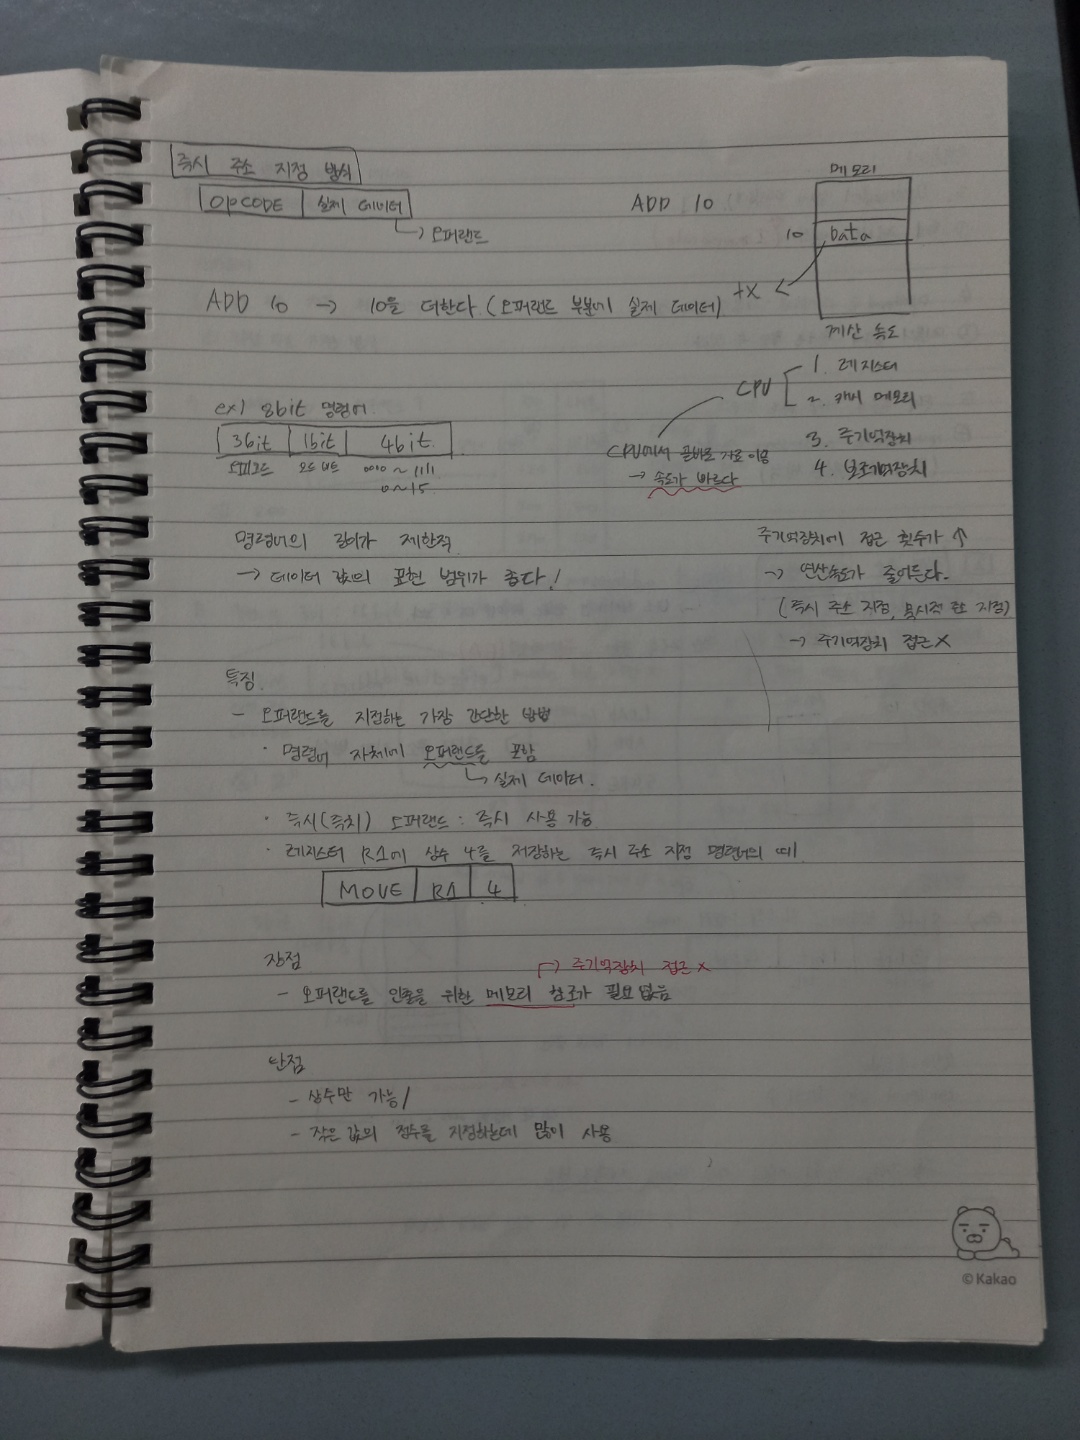 즉시 주소 지정 방식
OPCODE 실제 데이터
→ 오퍼랜드
ADD 10 → 10을 더한다 (오퍼랜드 부분에 실제 데이터)
메모리
ADD 10
10 Data
+X
계산 속도
CPU
1. 레지스터
2. 캐시 메모리
3. 주기억장치
4. 보조기억장치
CPU에서 곧바로 자료 이용
→ 속도가 빠르다
ex) 8bit 명령어
3bit 1bit 4bit
오피코드 모드 비트 0000 ~ 1111
0~15
명령어의 길이가 제한적
→ 데이터 값의 표현 범위가 좁다!
주기억장치에 접근 횟수가 ↑
→ 연산속도가 줄어든다.
(즉시 주소 지정, 묵시적 주소 지정)
→ 주기억장치 접근 X
특징
- 오퍼랜드를 지정하는 가장 간단한 방법
· 명령어 자체에 오퍼랜드를 포함
→ 실제 데이터.
· 즉시(즉치) 오퍼랜드 : 즉시 사용 가능
· 레지스터 R1에 상수 4를 저장하는 즉시 주소 지정 명령어의 예
MOVE R1 4
장점
→ 주기억장치 접근 X
- 오퍼랜드를 인출을 위한 메모리 참조가 필요 없음
단점
- 상수만 가능/
- 작은 값의 정수를 지정하는데 많이 사용
© Kakao